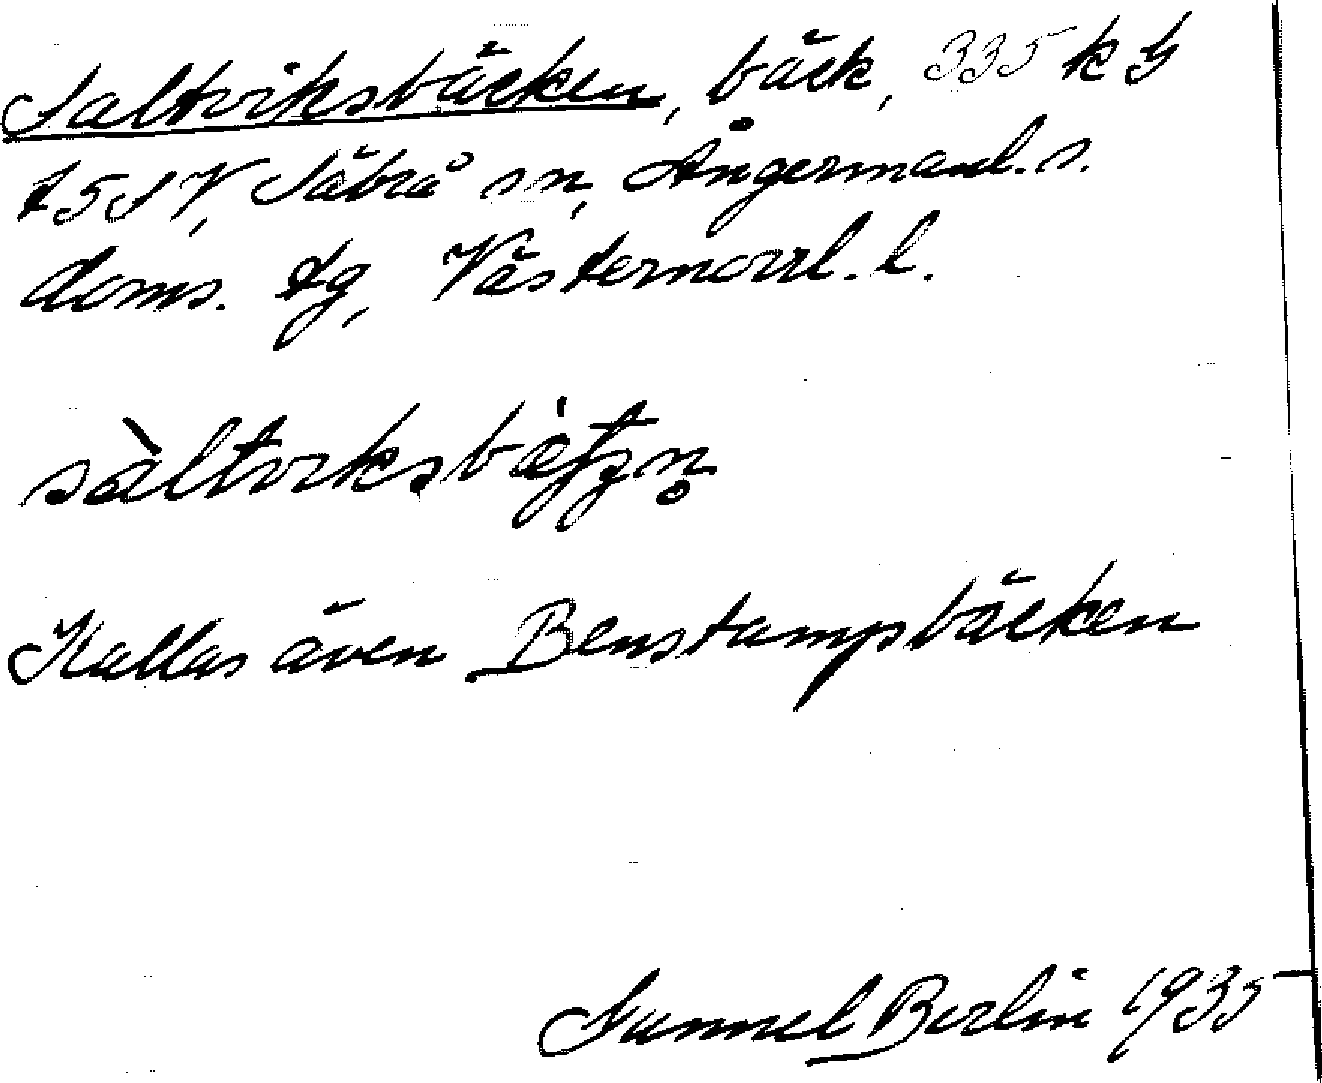 Saltviksbäcken, bäck, 335 k G
t 5 S V, Säbrå sn, Ångermanl. s.
doms. tg, Västernorrl. l.
Kallas även Benstampbäcken
Samuel Berlin 1935